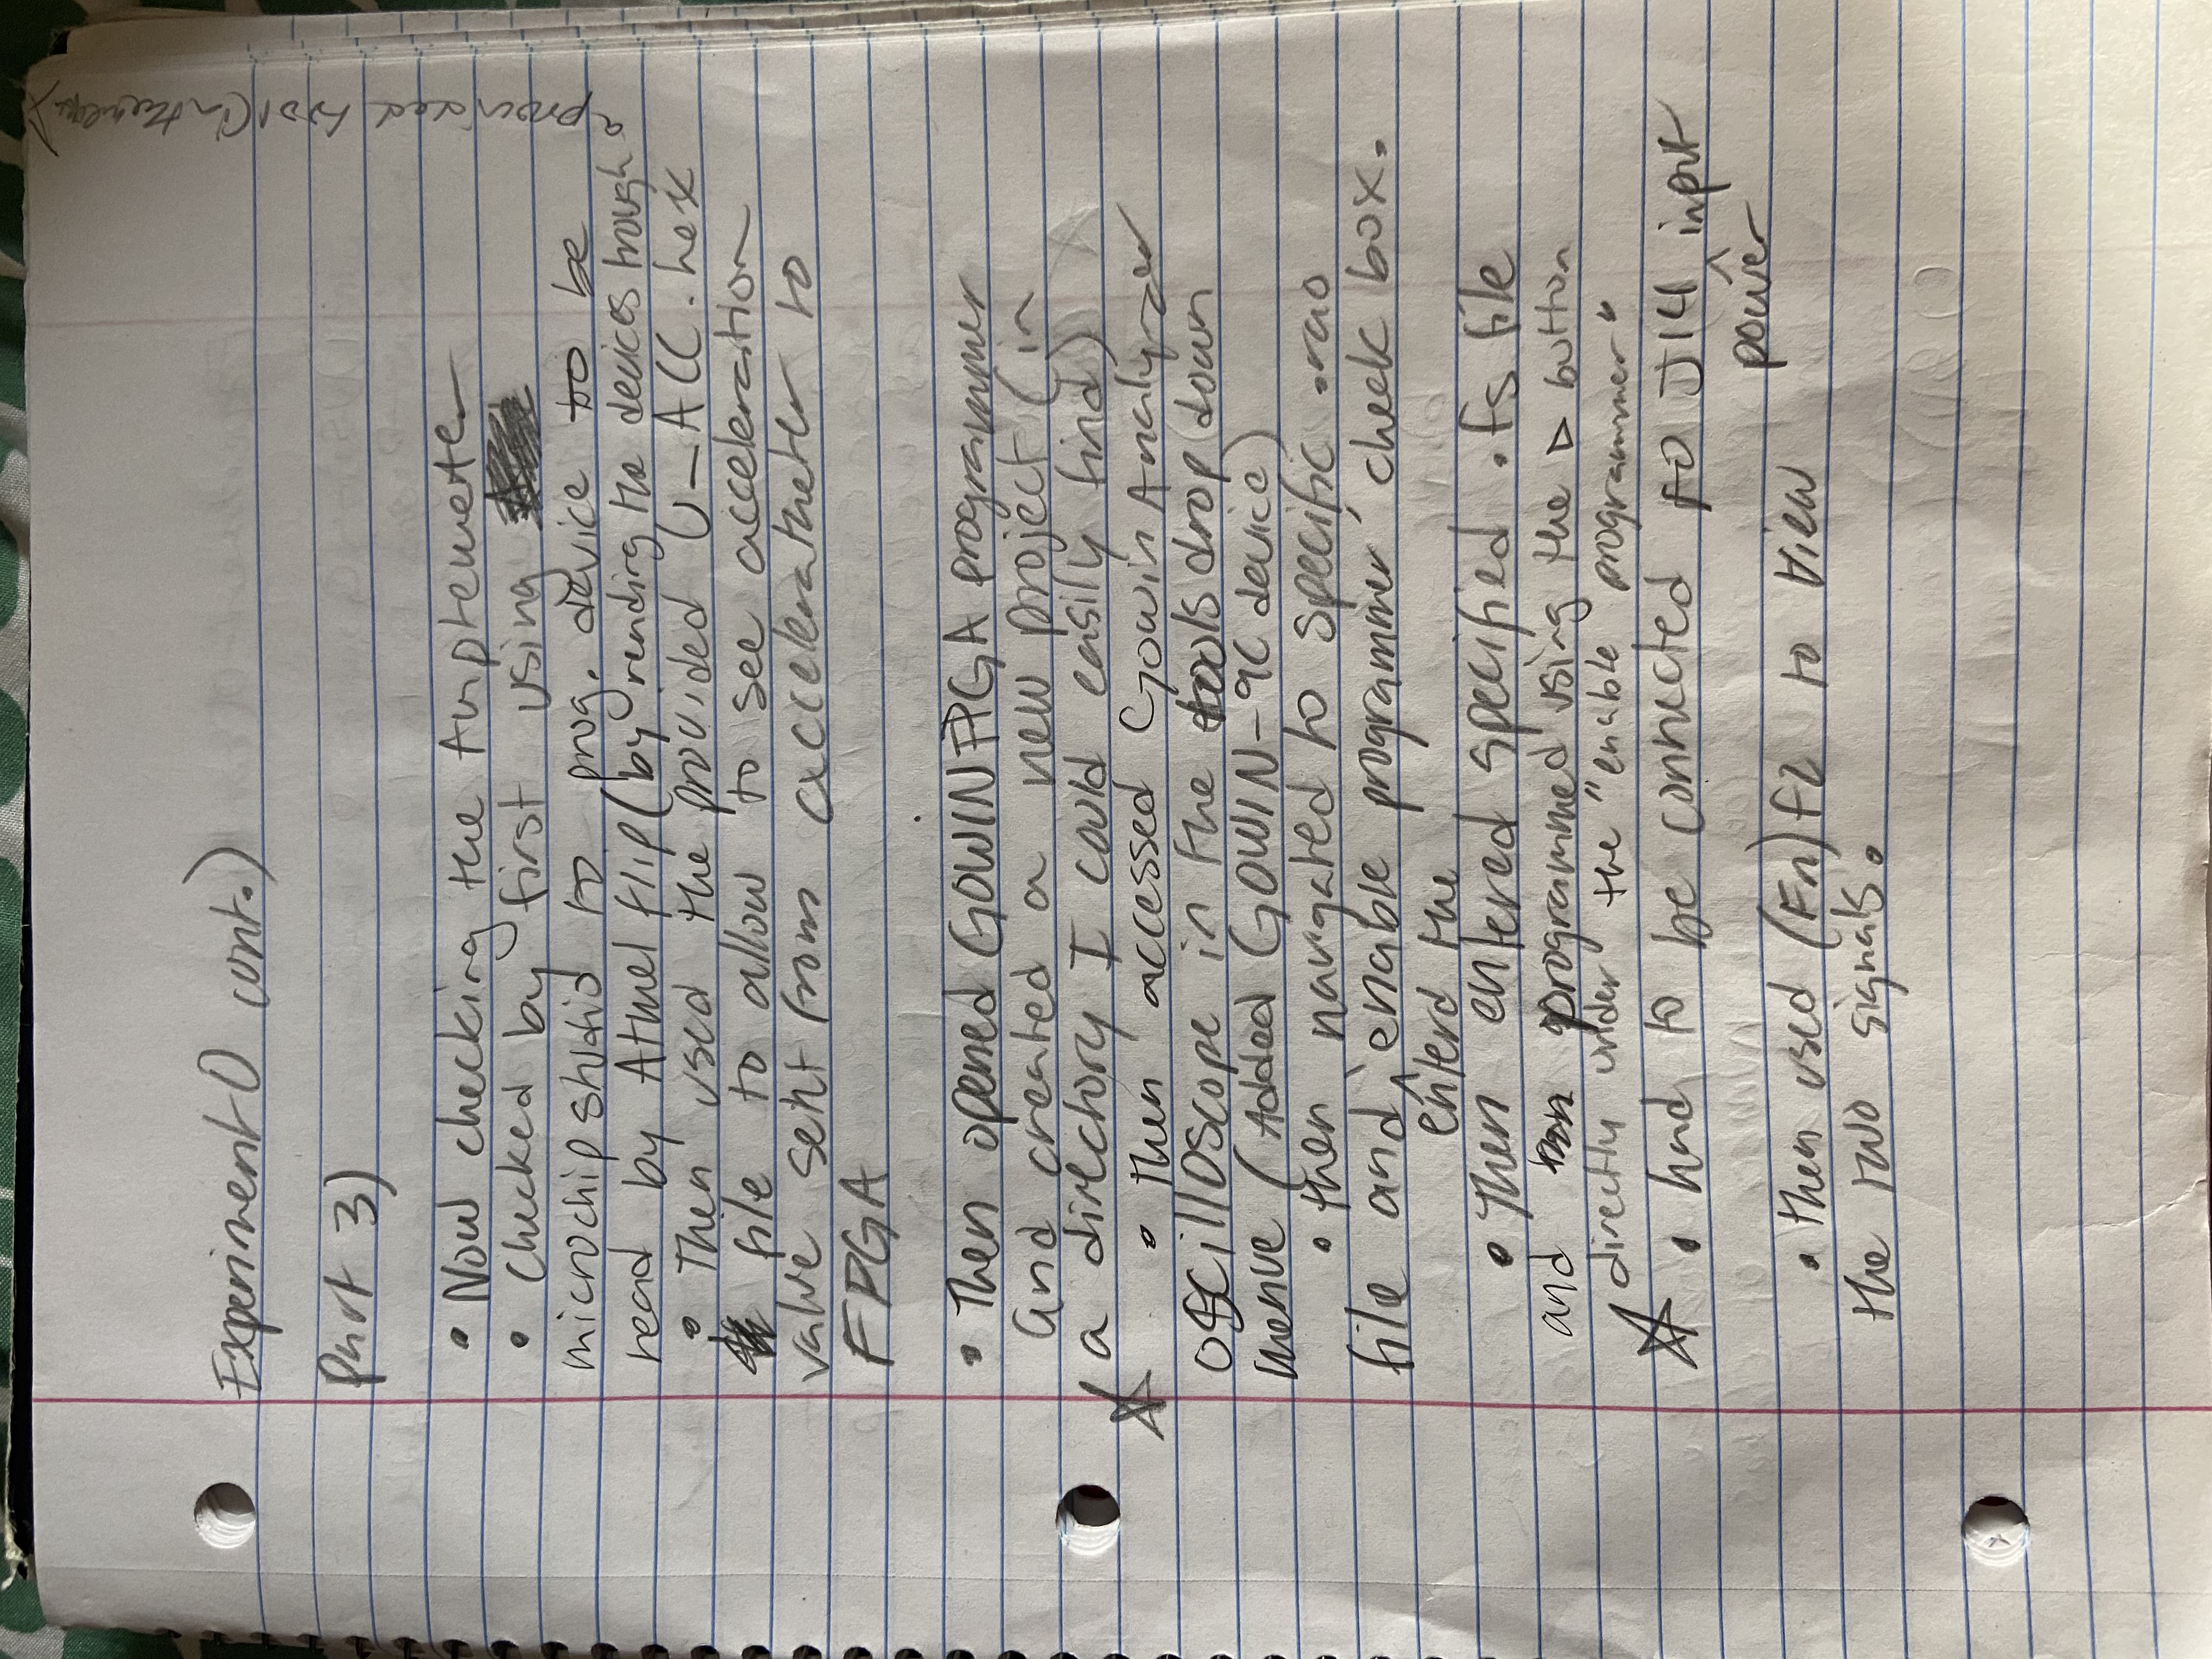 Experiment 0 cont.)
Part 3)
• Now checking the
• checked by first using
microchip studio to prog. device to be
read by Atmel flip (by reading the devices trough
a provided tool (in the menue)
• Then used the provided U_ACC.hex
file to allow to see acceleration
value sent from to
FPGA
• Then opened GOWIN FPGA programmer
and created a new project (in
a directory I could easily find)
• then accessed Gowin Analyzer
oscilloscope in the tools drop down
menue (Added GOWIN-9C device)
• then navigated to specific .rao
file and 'enable programmer' check box.
enterd the
• Then entered specified .fs file
and programmed using the ▷ button
directly under the "enable programmer"
• had to be connected to J14 input
power
• then used (Fn) f2 to view
the two signals.